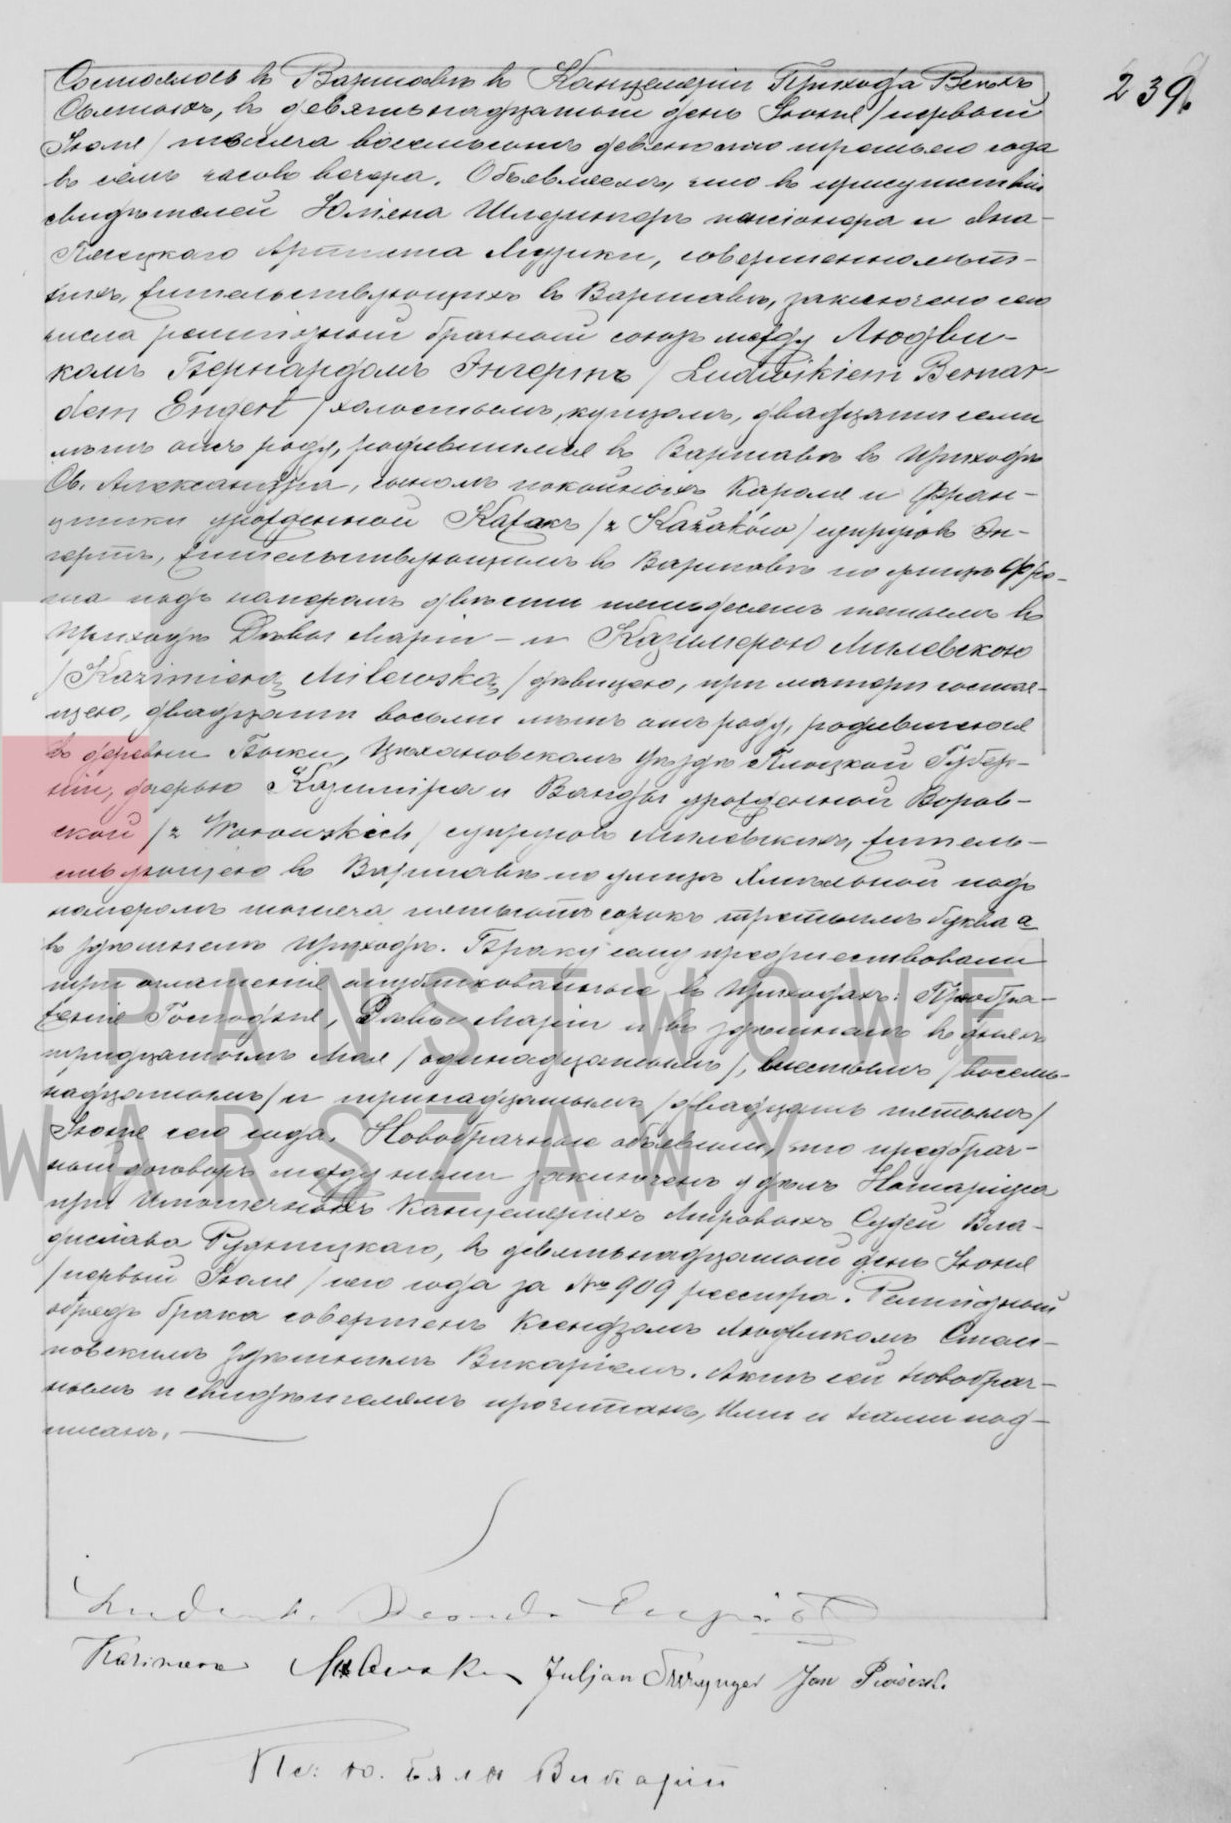 239.
Состоялось въ Варшавѣ въ Канцеляріи Прихода Всѣхъ
Святыхъ, въ девятнадцатый день Іюня /первый
Іюля/ тысяча восемьсотъ девяносто третьяго года
въ семь часовъ вечера. Объявляемъ, что въ присутствіи
свидѣтелей Юліяна пенсіонера и Яна
Пясецкаго Артиста Музыки, совершеннолѣт-
нихъ, жительствующихъ въ Варшавѣ, заключенъ сего
числа религіозный брачный союзъ между Людви-
комъ Бернардомъ Энгертъ /Ludwikiem Bernar-
dem Engert/ холостымъ, купцомъ, двадцати семи
лѣтъ отъ роду, родившимся въ Варшавѣ въ приходѣ
Св. Александра, сыномъ покойныхъ Кароля и Фран-
цишки урожденной Кажакъ /z Każaków/ супруговъ Эн-
гертъ, жительствующимъ въ Варшавѣ по улицѣ Фре-
та подъ номеромъ двѣсти пятьдесятъ пятымъ въ
Приходѣ Дѣвы Маріи – и Казимерою Милевскою
/Kazimierą Milewską/ дѣвицею, при матери состоя-
щею, двадцати восьми лѣтъ отъ роду, родившеюся
въ деревни Цѣхановскомъ уѣздѣ Плоцкой Губер-
ніи, дочерью Казимíра и Ванды урожденной Воров-
ской /z Worowskich/ супруговъ Милевскихъ, житель-
ствующею въ Варшавѣ по улицѣ Хмѣльной подъ
номеромъ тысяча пятьсотъ сорокъ третьимъ буква а
въ здѣшнемъ приходѣ. Браку сему предшествовали
три оглашенія опубликованныя въ приходахъ: Преобра-
женія Господня, Дѣвы Маріи и въ здѣшнемъ въ дняхъ
тридцатымъ Мая /одинадцатымъ/, шестымъ /восем-
надцатымъ/ и тринадцатымъ /двадцать пятымъ/
Іюня сего года. Новобрачные объявили, что предбрач-
ный договоръ между ними заключенъ у дѣлъ Нотаріуса
при Ипотечныхъ Канцеляріяхъ Мировыхъ Судей Вла-
дислава Рудницкаго, въ девятнадцатый день Іюня
/первый Іюля/ сего года за № 909 реестра. Религіозный
обрядъ брака совершенъ Ксендзомъ Людвикомъ
здѣшнимъ Викаріемъ. Актъ сей новобрач-
нымъ и свидѣтелямъ прочитанъ, ими и нами под-
писанъ.
PAŃSTWOWE
WARSZAWY
Kazimiera Milewska Juljan Jan
Кс. Ю. Викарій